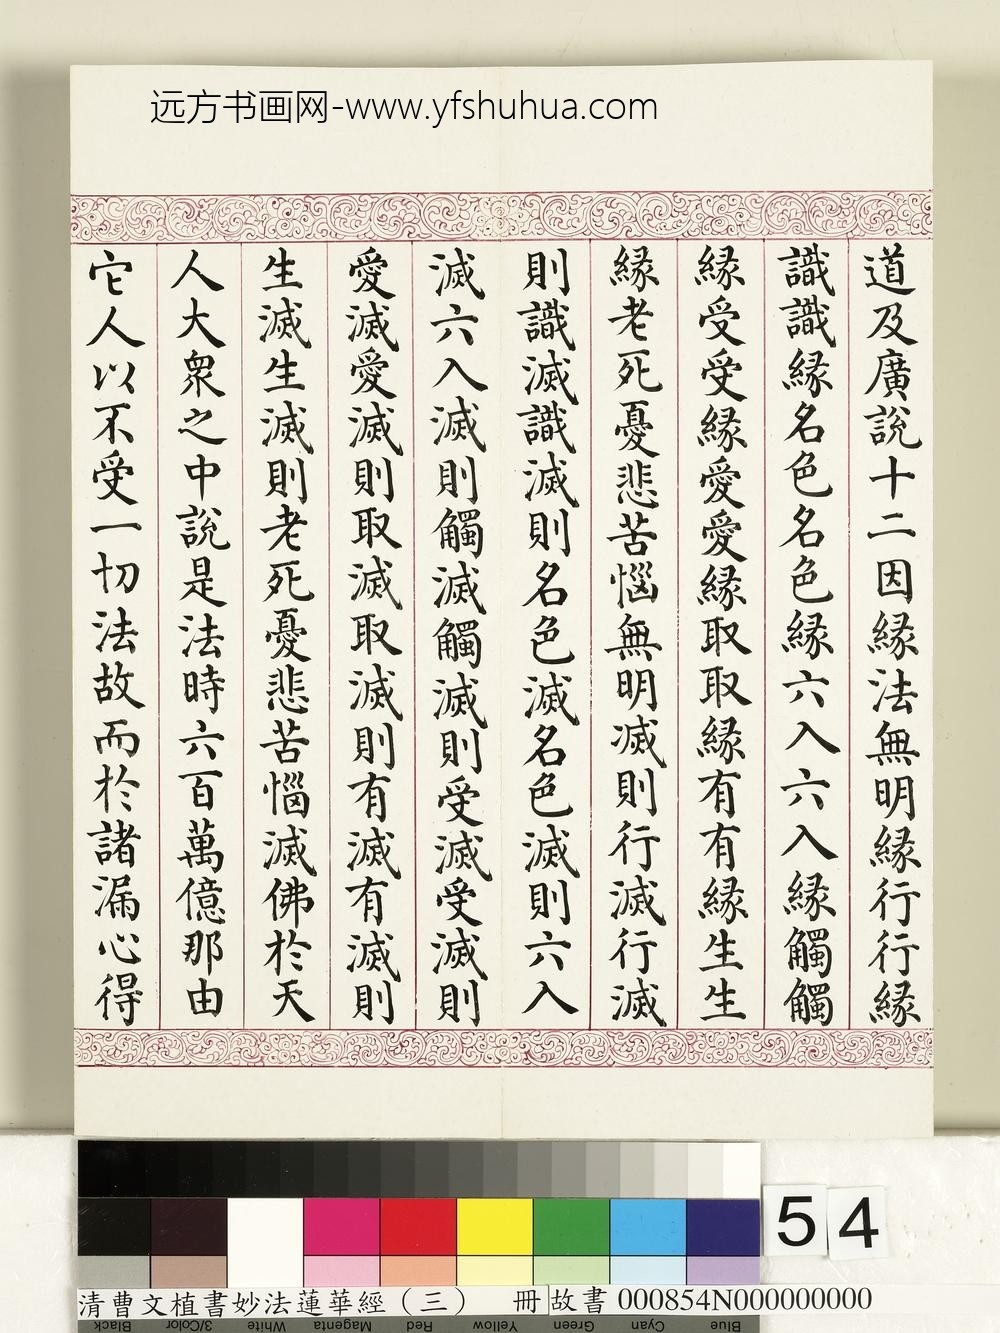 远方书画网-www.yfshuhua.com
道及廣說十二因緣法無明緣行行緣
識識緣名色名色緣六入六入緣觸觸
緣受受緣愛愛緣取取緣有有緣生生
緣老死憂悲苦惱無明滅則行滅行滅
則識滅識滅則名色滅名色滅則六入
滅六入滅則觸滅觸滅則受滅受滅則
愛滅愛滅則取滅取滅則有滅有滅則
生滅生滅則老死憂悲苦惱滅佛於天
人大眾之中說是法時六百萬億那由
它人以不受一切法故而於諸漏心得
54
清曹文植書妙法蓮華經（三） 冊 故書 000854N000000000
Black
3/Color
White
Magenta
Red
Yellow
Green
Cyan
Blue